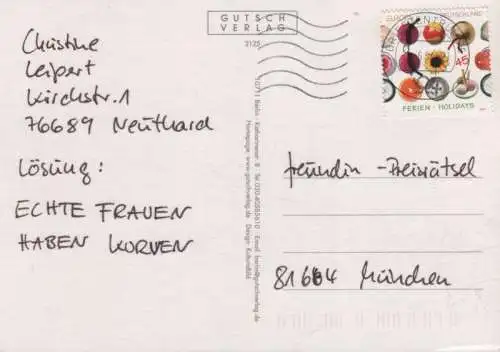 Christine
Leipert
Kirchstr. 1
76689 Neuthard
Lösung:
ECHTE FRAUEN
HABEN KURVEN
GUTSCH
VERLAG
2125
10711 Berlin · Katharinenstr. 8 · Tel. 030-40585610 · Email: berlin@gutschverlag.de
Homepage: www.gutschverlag.de · Design: Kulturbild
EUROPA DEUTSCHLAND
45
FERIEN · HOLIDAYS
freundin - Preisrätsel
81664 München